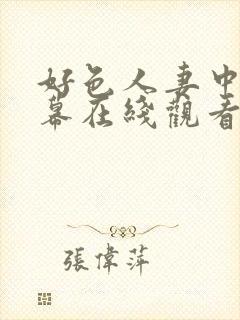 好色人妻中
幕在綫觀看
張偉萍